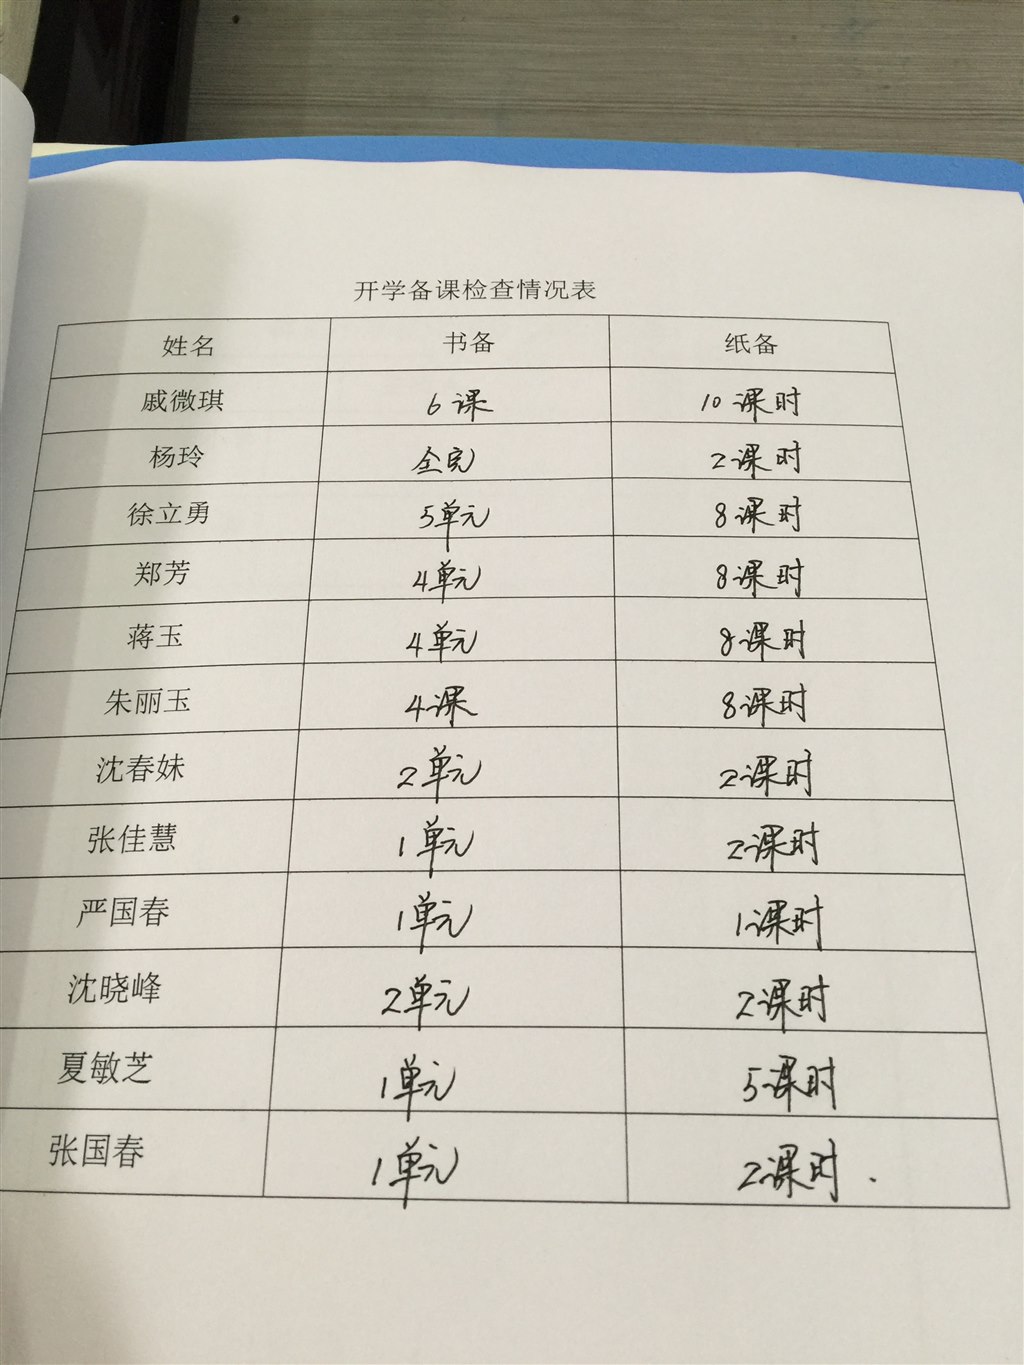 开学备课检查情况表
姓名 书备 纸备
戚微琪 6课 10课时
杨玲 全完 2课时
徐立勇 5单元 8课时
郑芳 4单元 8课时
蒋玉 4单元 8课时
朱丽玉 4课 8课时
沈春妹 2单元 2课时
张佳慧 1单元 2课时
严国春 1单元 1课时
沈晓峰 2单元 2课时
夏敏芝 1单元 5课时
张国春 1单元 2课时.